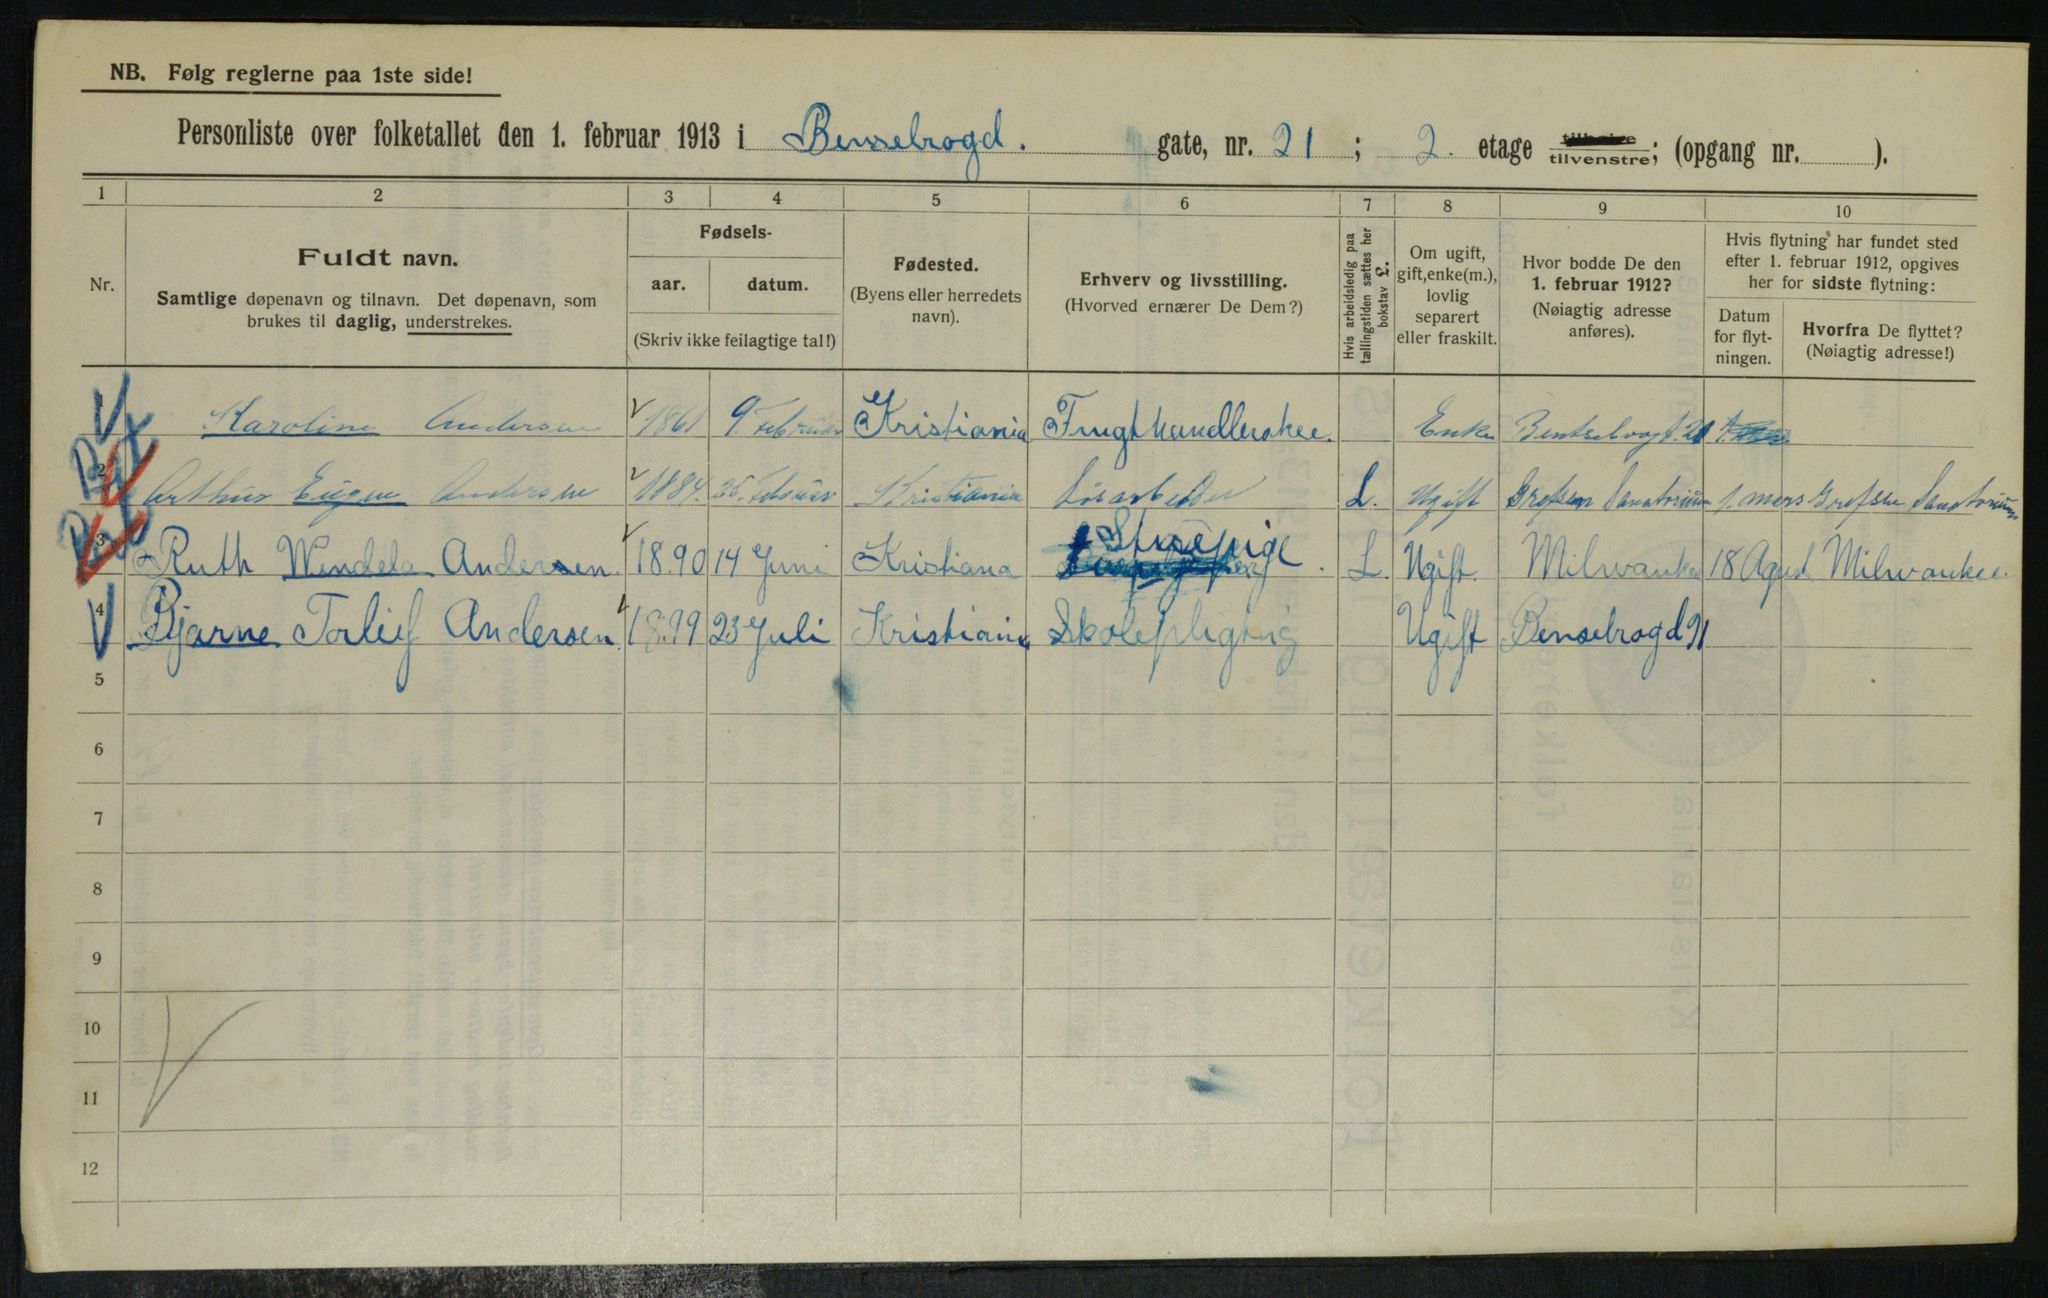 NB. Følg reglerne paa 1ste side!
Personliste over folketallet den 1. februar 1913 i Bensebrogd. gate, nr. 21 ; 2. etage tilhøire tilvenstre; (opgang nr. ).
1 2 3 4 5 6 7 8 9 10
Nr.
Fuldt navn.
Samtlige døpenavn og tilnavn. Det døpenavn, som
brukes til daglig, understrekes.
Fødsels-
aar. datum.
(Skriv ikke feilagtige tal!)
Fødested.
(Byens eller herredets
navn).
Erhverv og livsstilling.
(Hvorved ernærer De Dem?)
Hvis arbeidsledig paa
tællingstiden sættes her
bokstav L.
Om ugift,
gift, enke(m.),
lovlig
separert
eller fraskilt.
Hvor bodde De den
1. februar 1912?
(Nøiagtig adresse
anføres).
Hvis flytning har fundet sted
efter 1. februar 1912, opgives
her for sidste flytning:
Datum
for flyt-
ningen.
Hvorfra De flyttet?
(Nøiagtig adresse!)
1 Karoline Andersen 1861 9. Februar Kristiania Frugthandlerskee. Enke Bentsebrogt. 21
2 Arthur Eugen Andersen 1884. 25. Februar Kristiania Løsarbeider L. Ugift Grefsen Sanatorium 1. mars Grefsen Sanatorium
3 Ruth Wendela Andersen 1890 14 Juni Kristiana Strøepige. L. Ugift. Milwaukee 18 Agust Milwaukee.
4 Bjarne Torleif Andersen 1899 23 Juli Kristiania Skolepligtig Ugift Bensebrogd 21
5
6
7
8
9
10
11
12